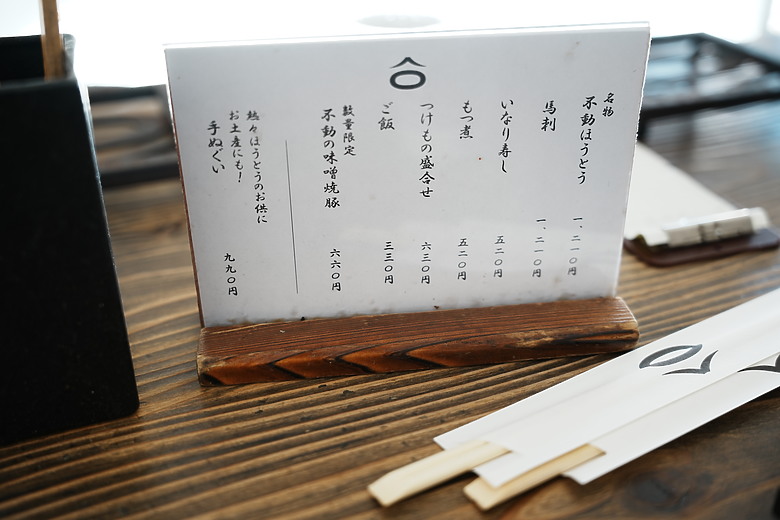 名物
不動ほうとう 一、二一〇円
馬刺 一、二一〇円
いなり寿し 五二〇円
もつ煮 五二〇円
つけもの盛合せ 六三〇円
ご飯 三三〇円
数量限定
不動の味噌焼豚 六六〇円
熱々ほうとうのお供に
お土産にも!
手ぬぐい 九九〇円